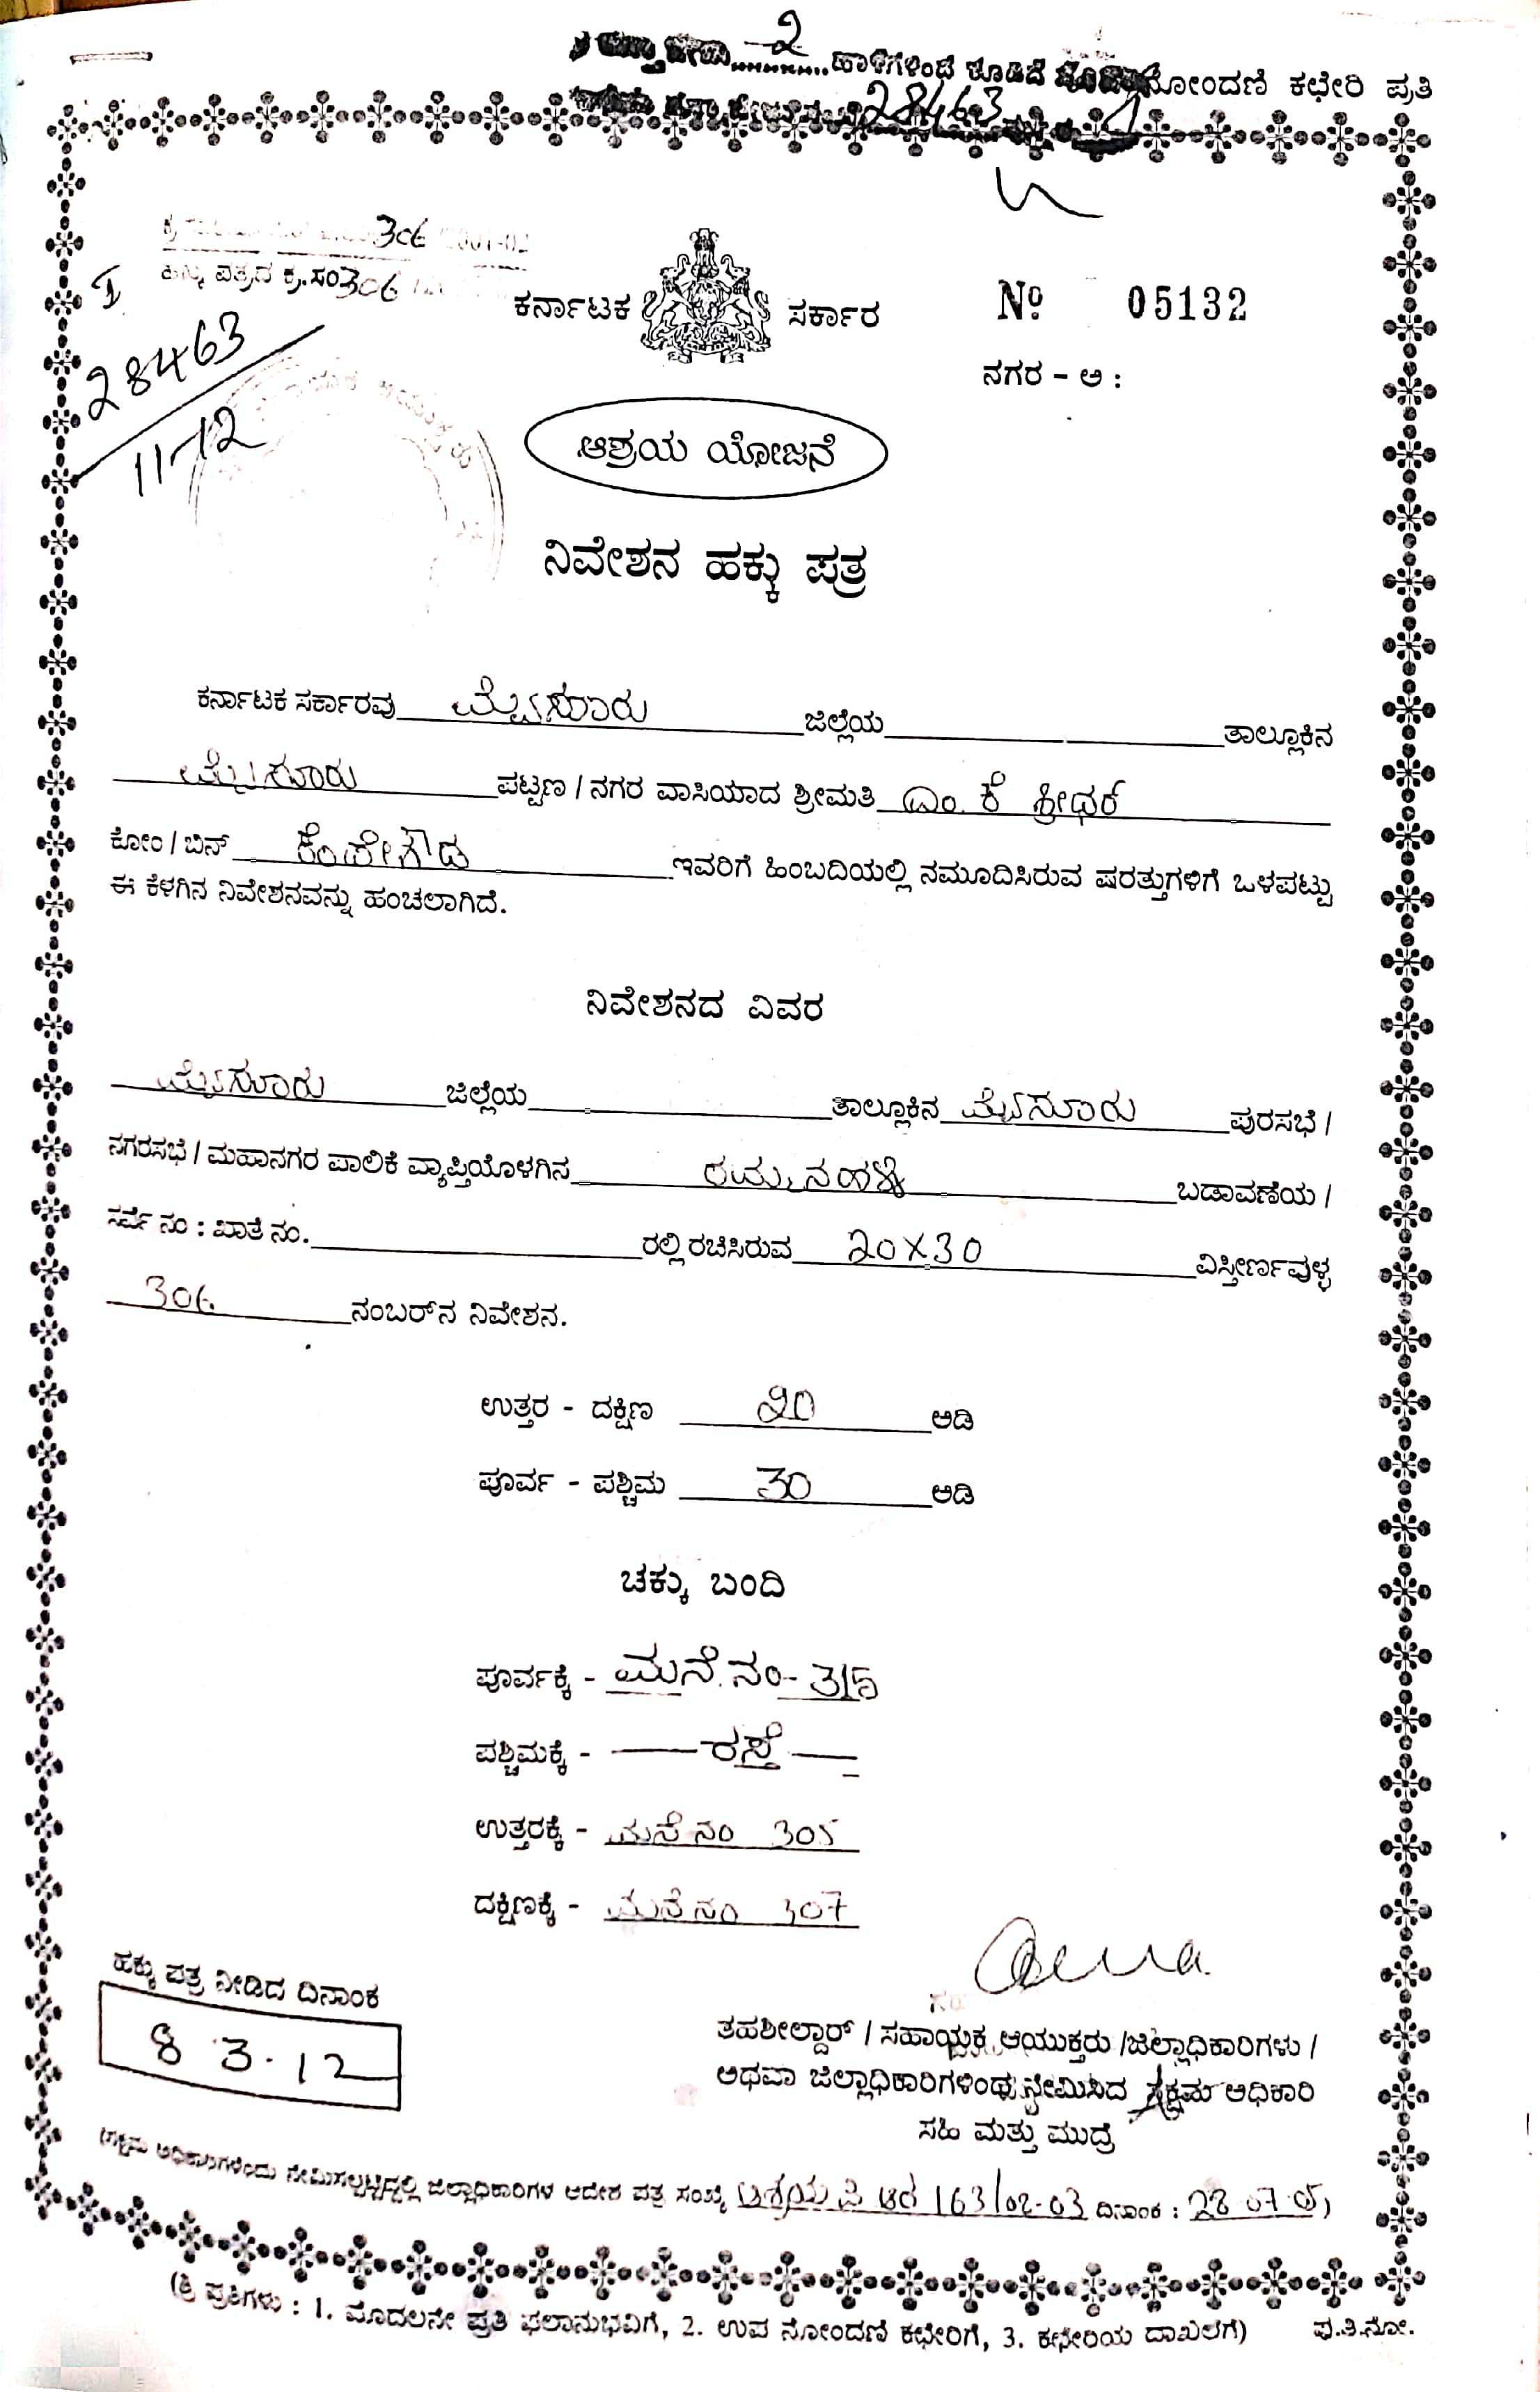 2 ಹಾಳೆಗಳಿಂದ ಕೂಡಿದೆ ನೋಂದಣಿ ಕಛೇರಿ ಪ್ರತಿ
28463
306
ಹಕ್ಕು ಪತ್ರದ ಕ್ರ.ಸಂ 306
I
28463
11-12
ಕರ್ನಾಟಕ ಸರ್ಕಾರ
Nº 05132
ನಗರ - ಅ :
ಆಶ್ರಯ ಯೋಜನೆ
ನಿವೇಶನ ಹಕ್ಕು ಪತ್ರ
ಕರ್ನಾಟಕ ಸರ್ಕಾರವು ಮೈಸೂರು ಜಿಲ್ಲೆಯ ತಾಲ್ಲೂಕಿನ
ಮೈಸೂರು ಪಟ್ಟಣ / ನಗರ ವಾಸಿಯಾದ ಶ್ರೀಮತಿ ಎಂ. ಕೆ ಶ್ರೀಧರ್
ಕೋಂ / ಬಿನ್ ಕೆಂಪೇಗೌಡ ಇವರಿಗೆ ಹಿಂಬದಿಯಲ್ಲಿ ನಮೂದಿಸಿರುವ ಷರತ್ತುಗಳಿಗೆ ಒಳಪಟ್ಟು
ಈ ಕೆಳಗಿನ ನಿವೇಶನವನ್ನು ಹಂಚಲಾಗಿದೆ.
ನಿವೇಶನದ ವಿವರ
ಮೈಸೂರು ಜಿಲ್ಲೆಯ ತಾಲ್ಲೂಕಿನ ಮೈಸೂರು ಪುರಸಭೆ /
ನಗರಸಭೆ / ಮಹಾನಗರ ಪಾಲಿಕೆ ವ್ಯಾಪ್ತಿಯೊಳಗಿನ ರಮ್ಮನಹಳ್ಳಿ ಬಡಾವಣೆಯ /
ಸರ್ವೆ ನಂ : ಖಾತೆ ನಂ. ರಲ್ಲಿ ರಚಿಸಿರುವ 20X30 ವಿಸ್ತೀರ್ಣವುಳ್ಳ
306 ನಂಬರ್‌ನ ನಿವೇಶನ.
ಉತ್ತರ - ದಕ್ಷಿಣ 20 ಅಡಿ
ಪೂರ್ವ - ಪಶ್ಚಿಮ 30 ಅಡಿ
ಚಕ್ಕು ಬಂದಿ
ಪೂರ್ವಕ್ಕೆ - ಮನೆ.ನಂ- 315
ಪಶ್ಚಿಮಕ್ಕೆ - ರಸ್ತೆ
ಉತ್ತರಕ್ಕೆ - ಮನೆ ನಂ 305
ದಕ್ಷಿಣಕ್ಕೆ - ಮನೆ ನಂ 307
ಹಕ್ಕು ಪತ್ರ ನೀಡಿದ ದಿನಾಂಕ
8 3.12
ತಹಶೀಲ್ದಾರ್ / ಸಹಾಯಕ ಆಯುಕ್ತರು / ಜಿಲ್ಲಾಧಿಕಾರಿಗಳು /
ಅಥವಾ ಜಿಲ್ಲಾಧಿಕಾರಿಗಳಿಂದ ನೇಮಿಸಿದ ಸಕ್ಷಮ ಅಧಿಕಾರಿ
ಸಹಿ ಮತ್ತು ಮುದ್ರೆ
(ಸಕ್ಷಮ ಅಧಿಕಾರಿಗಳೆಂದು ನೇಮಿಸಲ್ಪಟ್ಟಿದ್ದಲ್ಲಿ ಜಿಲ್ಲಾಧಿಕಾರಿಗಳ ಆದೇಶ ಪತ್ರ ಸಂಖ್ಯೆ ಆಶ್ರಯ 163/02-03 ದಿನಾಂಕ : 28 07 05)
(ತ್ರಿ ಪ್ರತಿಗಳು : 1. ಮೊದಲನೇ ಪ್ರತಿ ಫಲಾನುಭವಿಗೆ, 2. ಉಪ ನೋಂದಣಿ ಕಛೇರಿಗೆ, 3. ಕಛೇರಿಯ ದಾಖಲೆಗೆ) ಪು.ತಿ.ನೋ.